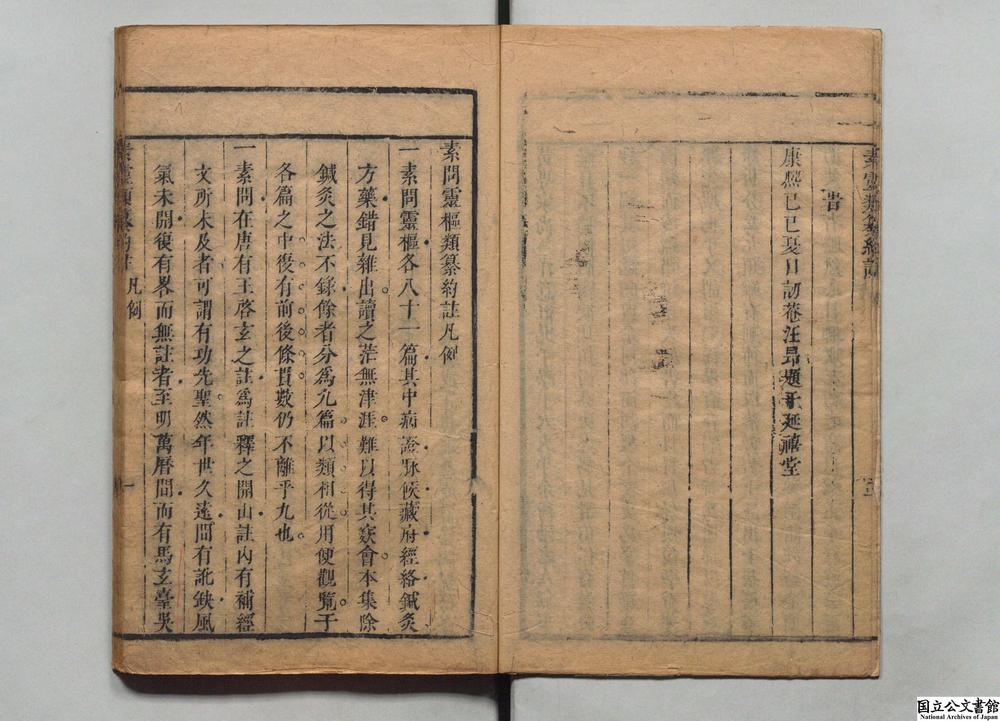 素靈類纂約註
旹
康熙己巳夏日訒菴汪昂題于延禧堂
素問靈樞類纂約註凡例
一素問靈樞各八十一篇其中病證脉候藏府經絡鍼灸
方藥錯見雜出讀之茫無津涯難以得其窽會本集除
鍼灸之法不錄餘者分爲九篇以類相從用便觀覽于
各篇之中復有前後條貫數仍不離乎九也
一素問在唐有王啓玄之註爲註釋之開山註內有補經
文所未及者可謂有功先聖然年世久遠間有訛缺風
氣未開復有畧而無註者至明萬曆間而有馬玄臺吳
素靈類纂約註 凡例 一
国立公文書館
National Archives of Japan